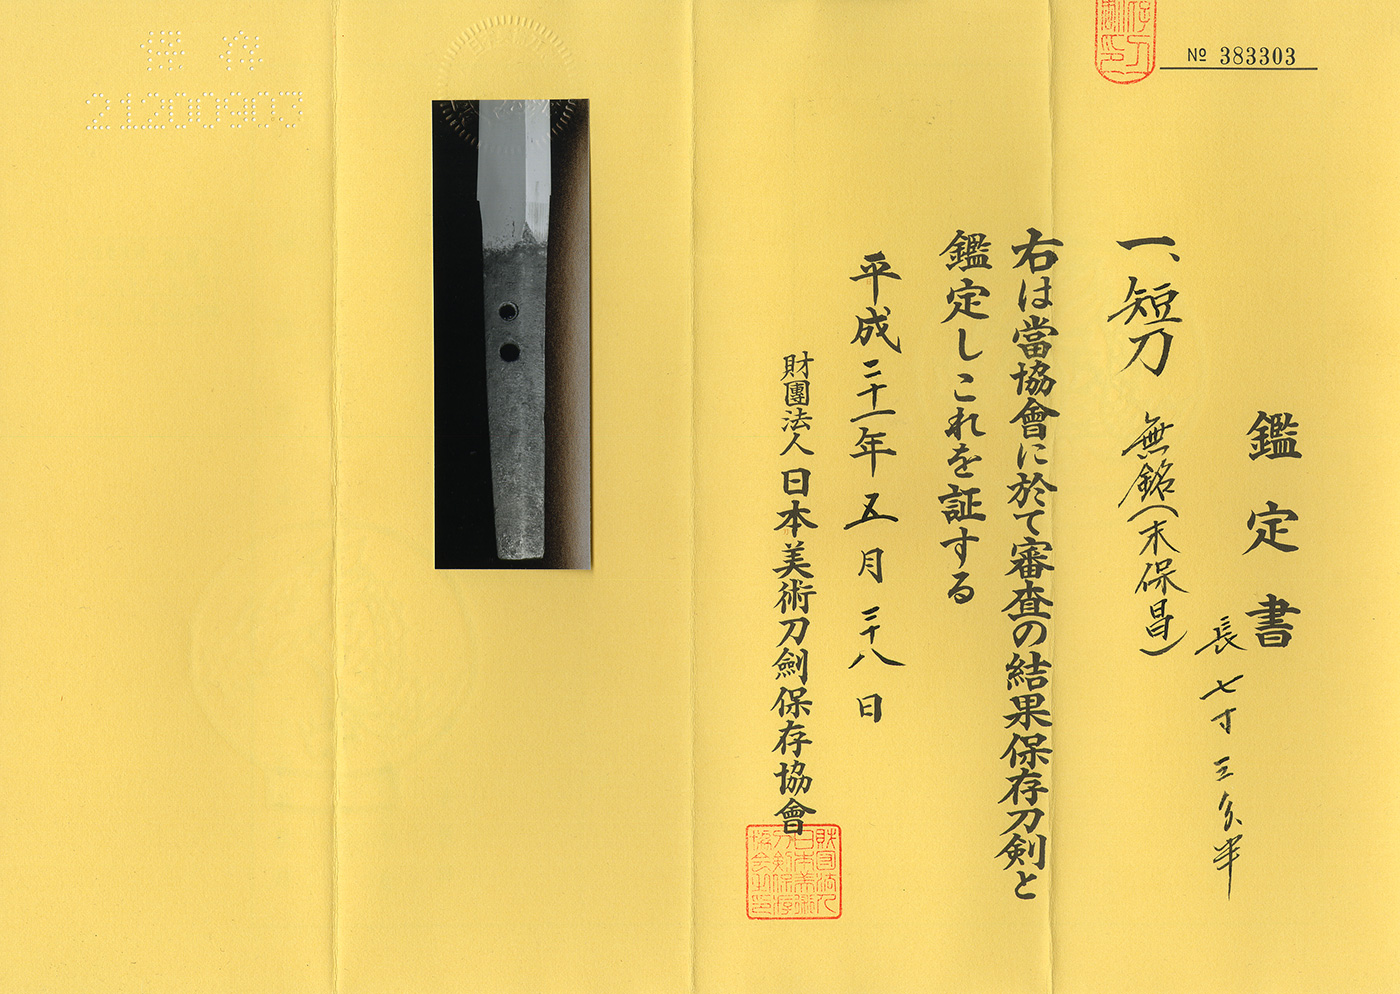 № 383303
鑑定書
一、短刀 無銘(末保昌)
長 七寸三分半
右は當協會に於て審査の結果保存刀剣と
鑑定しこれを証する
平成二十一年五月二十八日
財團法人 日本美術刀劍保存協會
財団法人
日本美術
刀剣保存
協会之印
保存
21200903